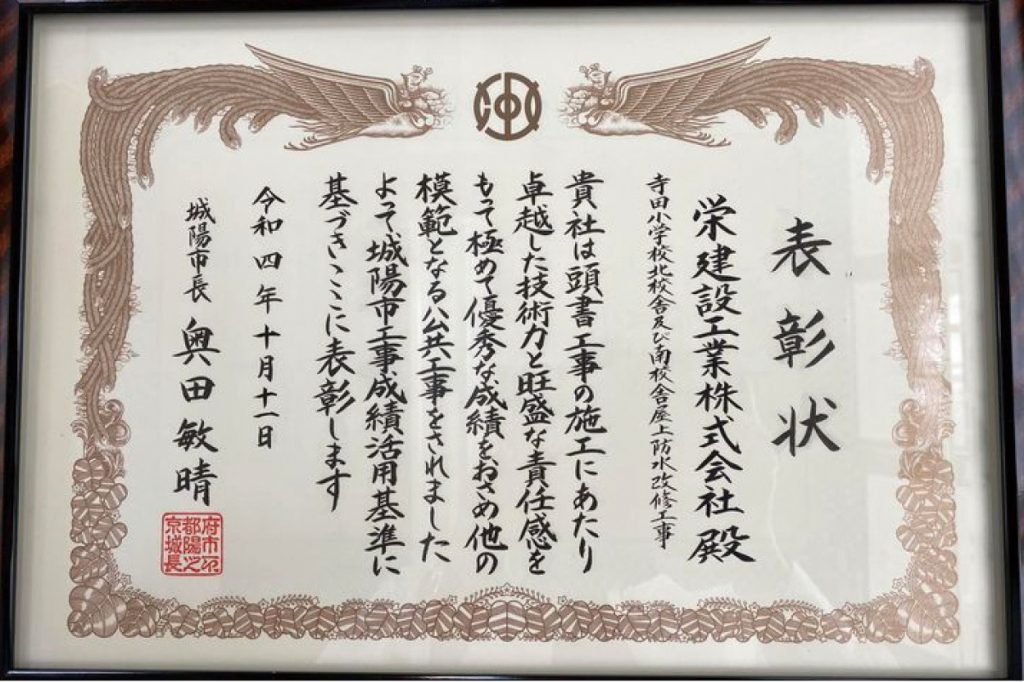 表彰状
栄建設工業株式会社殿
寺田小学校北校舎及び南校舎屋上防水改修工事
貴社は頭書工事の施工にあたり
卓越した技術力と旺盛な責任感を
もって極めて優秀な成績をおさめ他の
模範となる公共工事をされました
よって城陽市工事成績活用基準に
基づきここに表彰します
令和四年十月十一日
城陽市長 奥田敏晴
府市印
都陽之
京城長